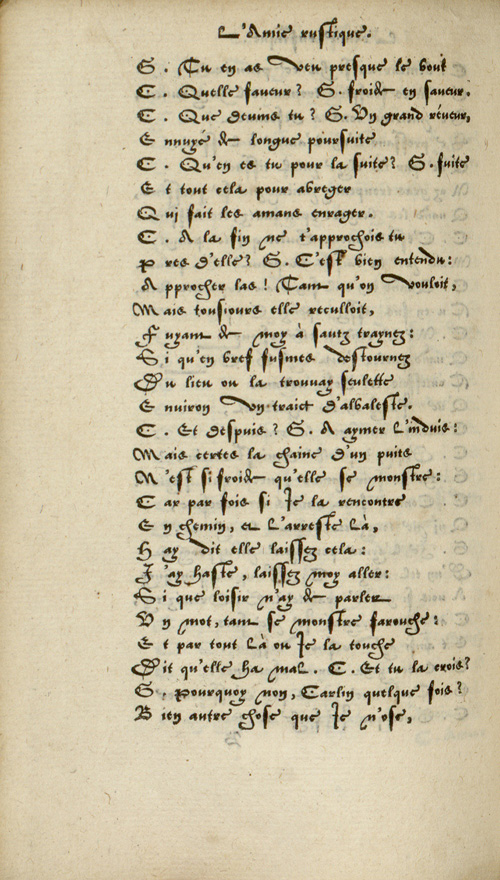 L'Amie rustique.
S. Tu en as veu presque le bout
C. Quelle faueur? S. froide en saueur.
C. Que deuins tu? S. Vn grand réueur,
Ennuyé de longue poursuite
C. Qu'en es tu pour la suite? S. fuite
Et tout cela pour abreger
Qui fait les amans enrager.
C. A la fin ne t'approchois tu
Pres d'elle? S. C'est bien entendu:
Approcher las! Tant qu'on vouloit,
Mais tousiours elle reculloit,
Fuyant de moy à sautz traynez:
Si qu'en bref fusmes destournez
Du lieu ou la trouuay seulette
Enuiron vn traict d'albaleste.
C. Et despuis? S. A aymer l'induis:
Mais certes la chaine d'vn puits
N'est si froide qu'elle se monstre:
Car par fois si Ie la rencontre
En chemin, et l'arreste là,
Hay dit elle laissez cela:
I'ay haste, laissez moy aller:
Si que loisir n'ay de parler
Vn mot, tant se monstre farouche:
Et par tout là ou Ie la touche
Dit qu'elle ha mal. C. Et tu la crois?
S. Pourquoy non, Carlin quelque fois?
Bien autre chose que Ie n'ose,